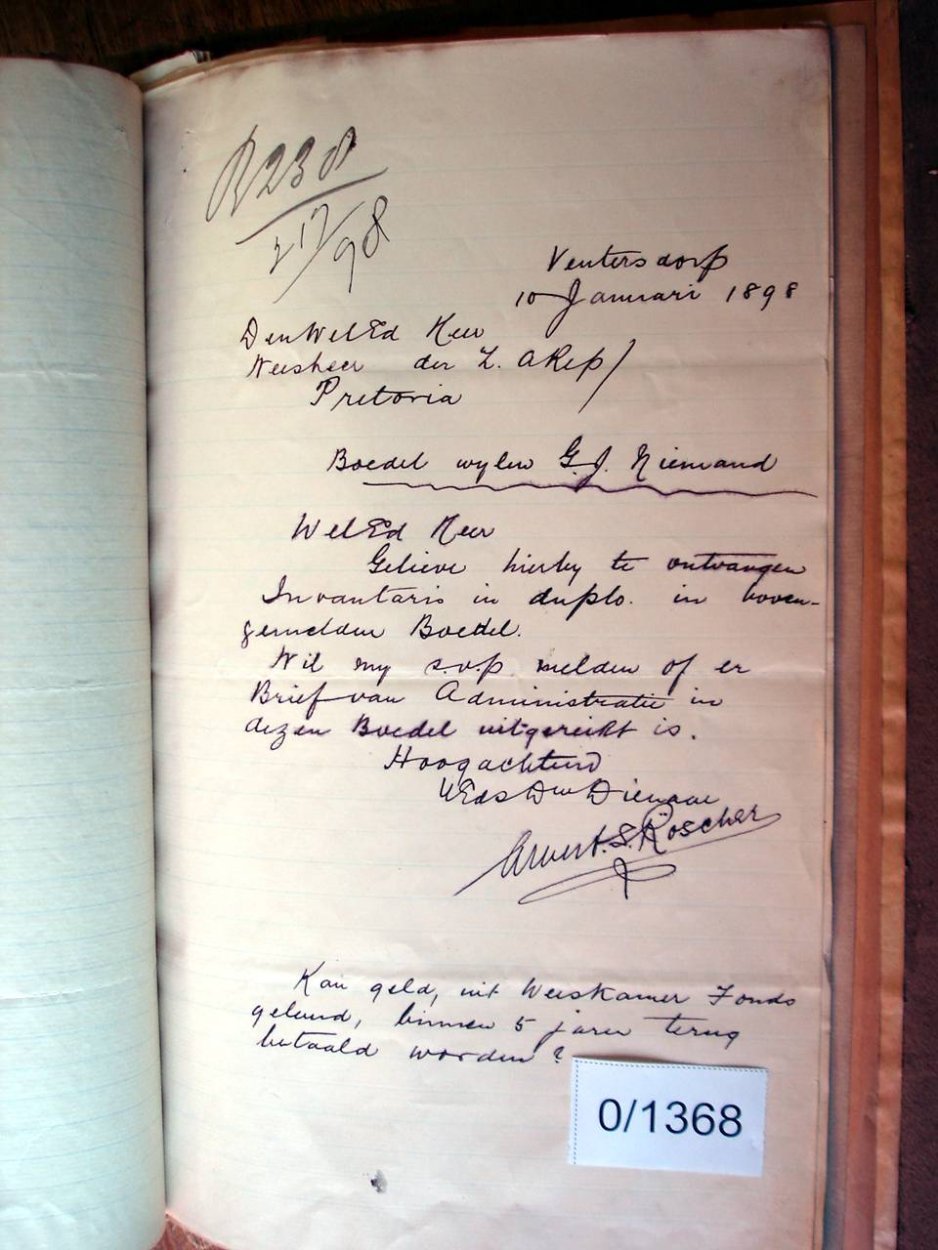 R238
217/98
Ventersdorp
10 Januari 1898
Den WelEd Heer
Weesheer der Z. A Rep/
Pretoria
Boedel wylen G. J. Niemand
WelEd Heer
Gelieve hierby te ontvangen
Invantaris in duplo. in boven-
gemelden Boedel.
Wil my s.v.p. melden of er
Brief van Administratie in
dezen Boedel uitgereikt is.
Hoogachtend
UEds Dw Dienaar
S. Röscher
Kan geld, uit Weeskamer Fonds
geleend, binnen 5 jaren terug
betaald worden?
0/1368